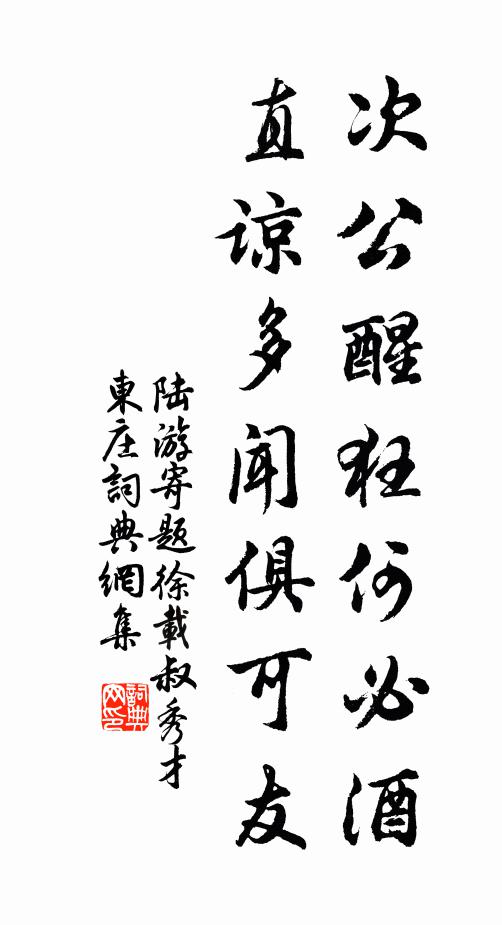 次公醒狂何必酒
直谅多闻俱可友
陆游寄题徐載叔秀才
東庄詞典網集
詞典网印